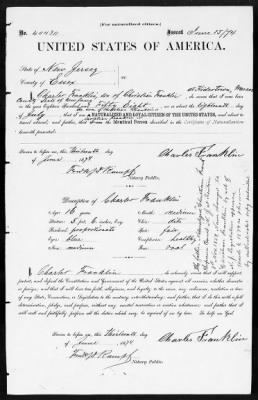 [For naturalized citizen.]
No. 40430 Issued June 15/74
UNITED STATES OF AMERICA.
State of New Jersey
County of Essex
I Charles Franklin, son of Christian Franklin do swear that I was born
in the year Eighteen Hundred and Fifty Eight on or about the day
of July; that I am a NATURALIZED AND LOYAL CITIZEN OF THE UNITED STATES, and about to
travel abroad; and further, that I am the Identical Person described in the Certificate of Naturalization
herewith presented.
Sworn to before me, this thirteenth day
of June 1874
Charles Franklin
Notary Public.
Description of Charles Franklin
Age 16 years
Mouth medium
Stature 5 ft. 6 inches, Eng.
Chin
Forehead proportionate
Hair fair
Eyes blue
Complexion healthy
Nose medium
Face oval
I, Charles Franklin do solemnly swear that I will support,
protect, and defend the Constitution and Government of the United States against all enemies, whether domestic
or foreign; and that I will bear true faith, allegiance, and loyalty to the same, any ordinance, resolution or law
of any State, Convention or Legislature to the contrary, notwithstanding; and further, that I do this with a full
determination, pledge, and purpose, without any mental reservation or evasion whatsoever; and further that I
will well and faithfully perform all the duties which may be required of me by law. So help me God.
Sworn to before me, this thirteenth day
of June 1874
Charles Franklin
Notary Public.